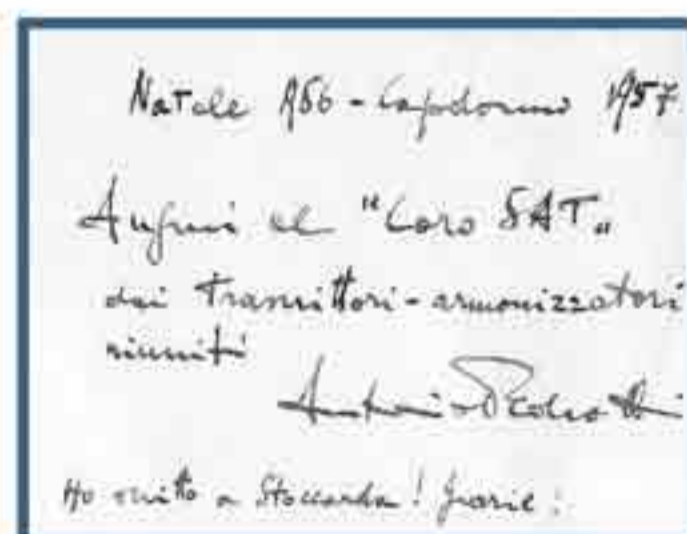 Natale 1956 - Capodanno 1957
Auguri al "Coro SAT"
dai Trascrittori-armonizzatori
riuniti
Antonio Pedrotti
Ho scritto a Stoccarda! Grazie!